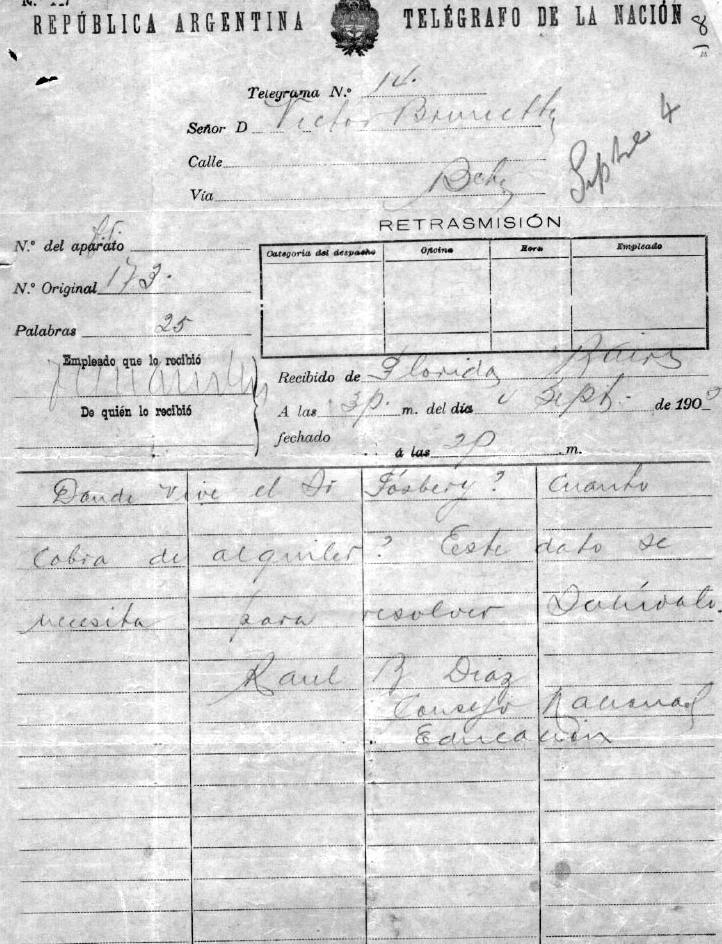 REPÚBLICA ARGENTINA TELÉGRAFO DE LA NACIÓN
8
Telegrama N.º 14.
Señor D Victor Brunetti
Calle
Vía
Septbre 4
RETRASMISIÓN
N.º del aparato
Categoría del despacho Oficina Hora Empleado
N.º Original 173.
Palabras 25
Empleado que lo recibió
Recibido de Florida
De quién lo recibió
A las 3p. m. del día 4 Sept. de 190
fechado
á las m.
Donde vive el Dr Fósbery? Cuanto
cobra de alquiler? Este dato se
necesita para resolver
Raul B Diaz
Consejo Nacional
Educación